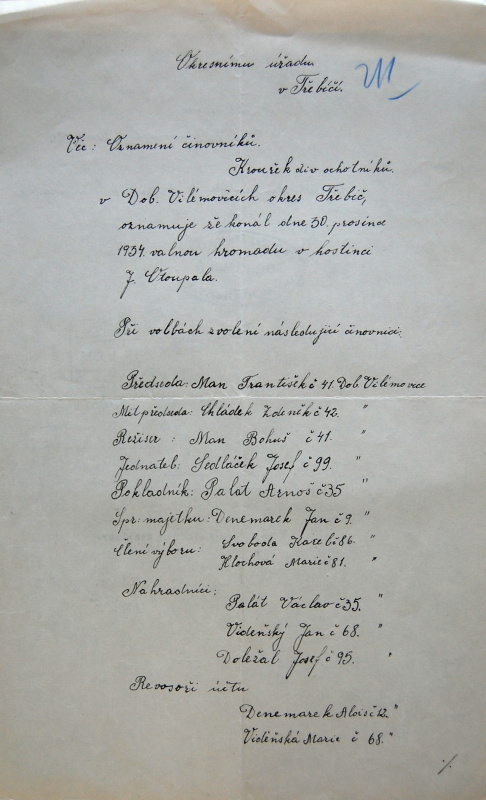 Okresnímu úřadu
v Třebíči.
Věc: Oznamení činovníků.
Kroužek div ochotníků.
v Dob. Vilémovicích okres Třebíč,
oznamuje že konál dne 30. prosince
1934 valnou hromadu v hostinci
J. Stoupala.
Při volbách zvolení následující činovnici:
Předseda: Man František č 41. Dob. Vilémovice
Míst předseda: Chládek Zdeněk č 42. "
Režiser: Man Bohuš č 41. "
Jednateb: Sedláček Josef č 99. "
Pokladník: Palát Arnoš č 35 "
Spr. majetku: Denemarek Jan č 9. "
Člení výboru: Svoboda Karel č 86. "
Hlochová Marie č 81. "
Nahradníci:
Palát Václav č 35. "
Vídeňský Jan č 68. "
Doležal Josef č 95. "
Revosoři účtu
Denemarek Alois č 12. "
Vídeňská Marie č 68. "
./.